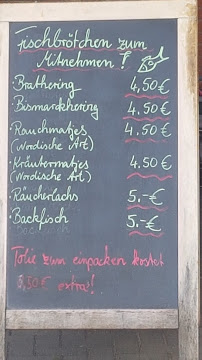 Fischbrötchen zum
Mitnehmen!
Brathering 4,50€
·Bismarckhering 4,50€
·Rauchmatjes 4.50€
(Nordische Art)
·Kräutermatjes 4.50€
(Nordische Art)
·Räucherlachs 5.-€
·Backfisch 5.-€
Folie zum einpacken kostet
0,50€ extra!